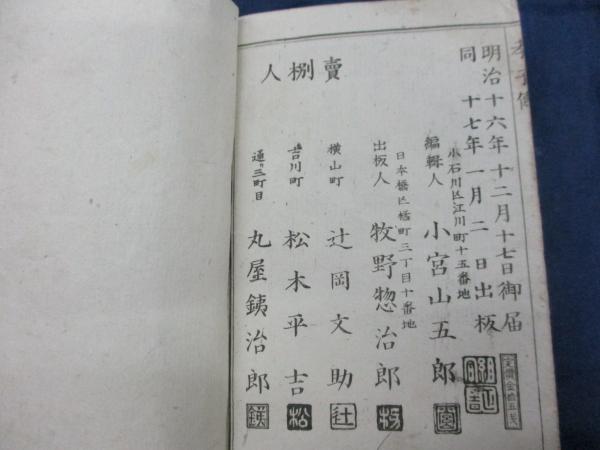 明治十六年十二月十七日御届
同 十七年一月二日出板
定價金拾五戔
小石川区江川町十五番地
編輯人 小宮山五郎
日本橋区橘町三丁目十番地
出板人 牧野惣治郎
賣捌人
横山町 辻岡文助
吉川町 松木平吉
通リ三町目 丸屋銕治郎
松